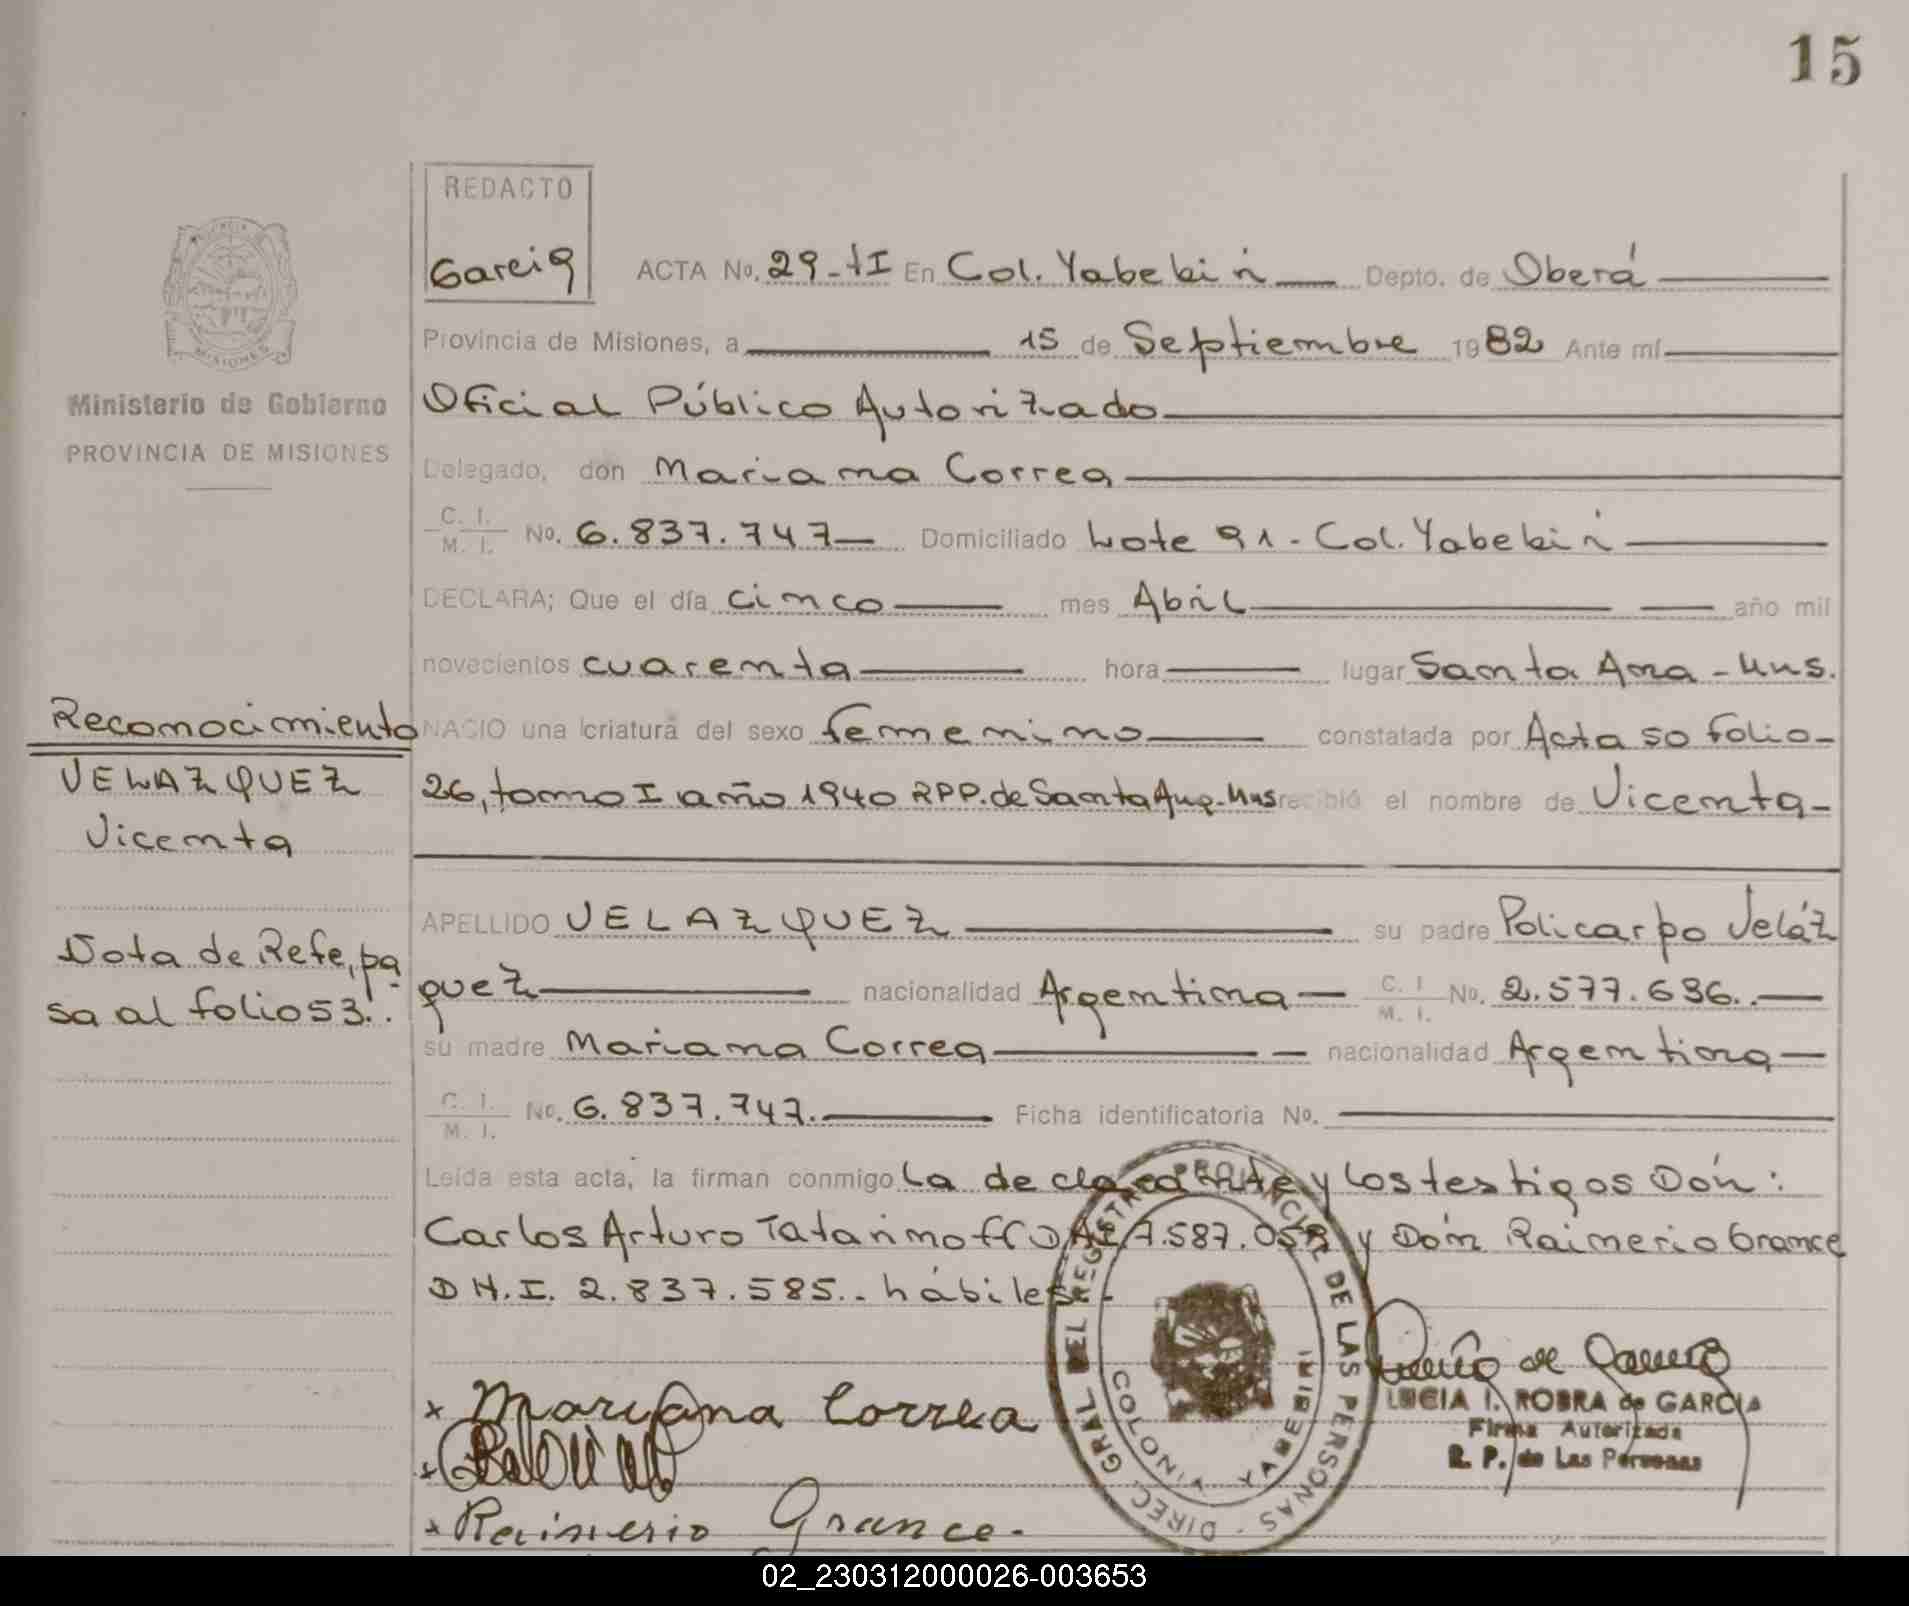 15
REDACTO
Garcia
ACTA No. 29-tI En Col. Yabebirí Depto. de Oberá
Provincia de Misiones, a 15 de Septiembre 1982 Ante mí
Oficial Público Autorizado
Ministerio de Gobierno
PROVINCIA DE MISIONES
Delegado, don Mariana Correa
C. I.
M. I. No. 6.837.747 Domiciliado Lote 91 - Col. Yabebirí
DECLARA; Que el día cinco mes Abril año mil
novecientos cuarenta hora lugar Santa Ana - Mns.
Reconocimiento
NACIO una criatura del sexo femenino constatada por Acta 50 folio
VELAZQUEZ
Vicenta
26, tomo I año 1940 RPP. de Santa Ana - Mns recibió el nombre de Vicenta
APELLIDO VELAZQUEZ su padre Policarpo Veláz
Nota de Refe, pa
sa al folio 53..
quez nacionalidad Argentina C. I.
M. I. No. 2.577.636..
su madre Mariana Correa nacionalidad Argentina
C. I.
M. I. No. 6.837.747. Ficha identificatoria No.
Leída esta acta, la firman conmigo La declarante y Los testigos Dón:
Carlos Arturo Tatarinoff 7.587. y Dón Raimerio Grance
D M. I. 2.837.585.. hábiles.-
x Mariana Correa
x Raimerio Grance.
DIREC. GRAL DEL REGISTRO PROVINCIAL DE LAS PERSONAS -
COLONIA YABEBIRI
LUCIA I. ROBRA de GARCIA
Firma Autorizada
R. P. de Las Personas
02_230312000026-003653